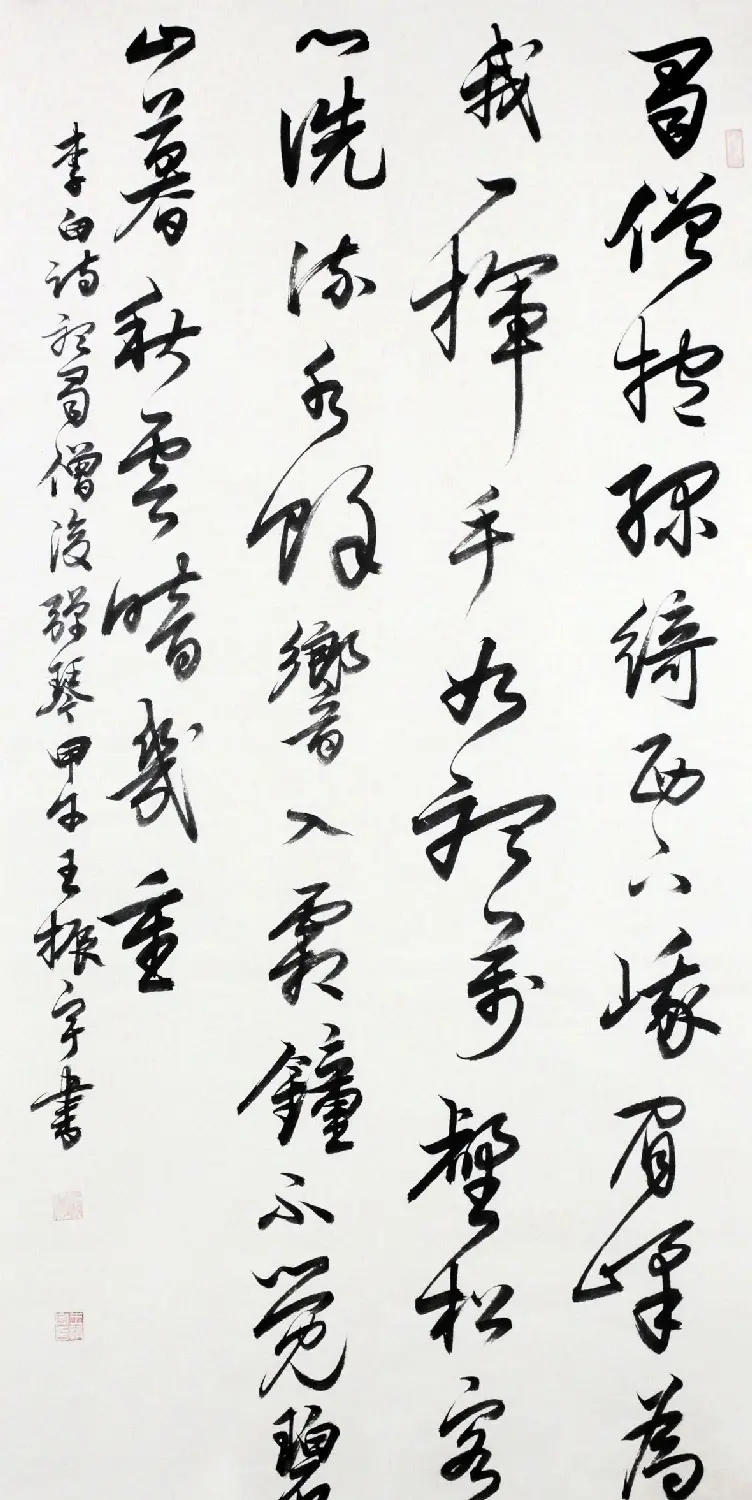 蜀僧抱綠綺西下峨眉峰為
我一揮手如聽萬壑松客
心洗流水餘響入霜鐘不覺碧
山暮秋雲暗幾重
李白詩聽蜀僧浚彈琴甲午王振宇書